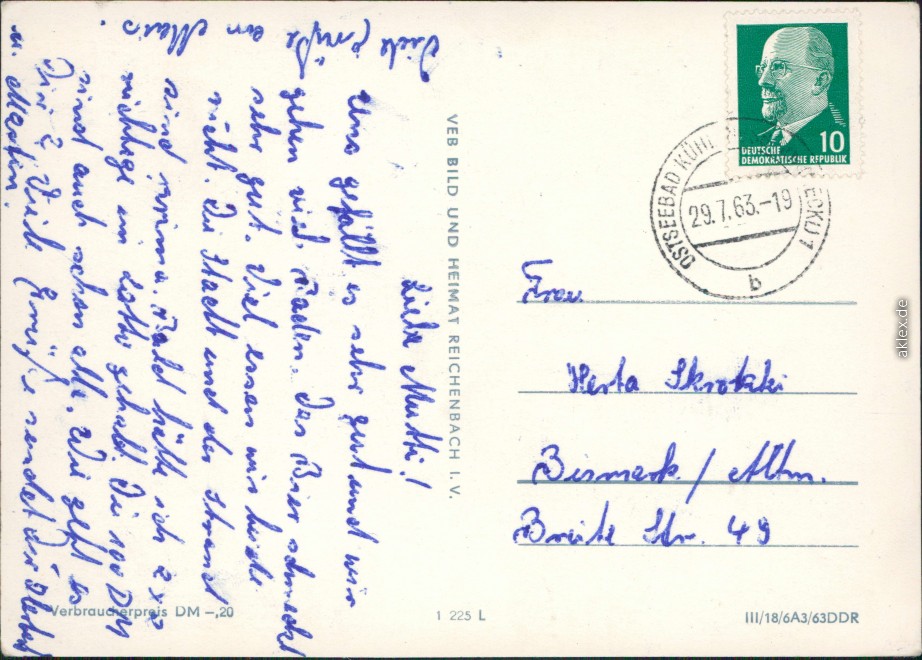 Liebe Mutti!
Uns gefällt es sehr gut und wir
gehen viel Baden. Das Bier schmeckt
sehr gut. Viel essen wir beide
nicht. Die Stadt und der Strand
sind prima. Bald hätte ich 2 x
richtige im Lotto gehabt. Die 100 DM
sind auch schon alle. Wie geht es
Dir? Viele Grüße sendet Dir
u. Martin.
Viele Grüße
an
VEB BILD UND HEIMAT REICHENBACH I. V.
DEUTSCHE
DEMOKRATISCHE REPUBLIK
10
OSTSEEBAD KÜHL
29.7.63.-19
b
Frau
Herta Skrotzki
Bismark / Altm.
Breite Str. 49
Verbraucherpreis DM -,20
1 225 L
III/18/6A3/63DDR
aklex.de